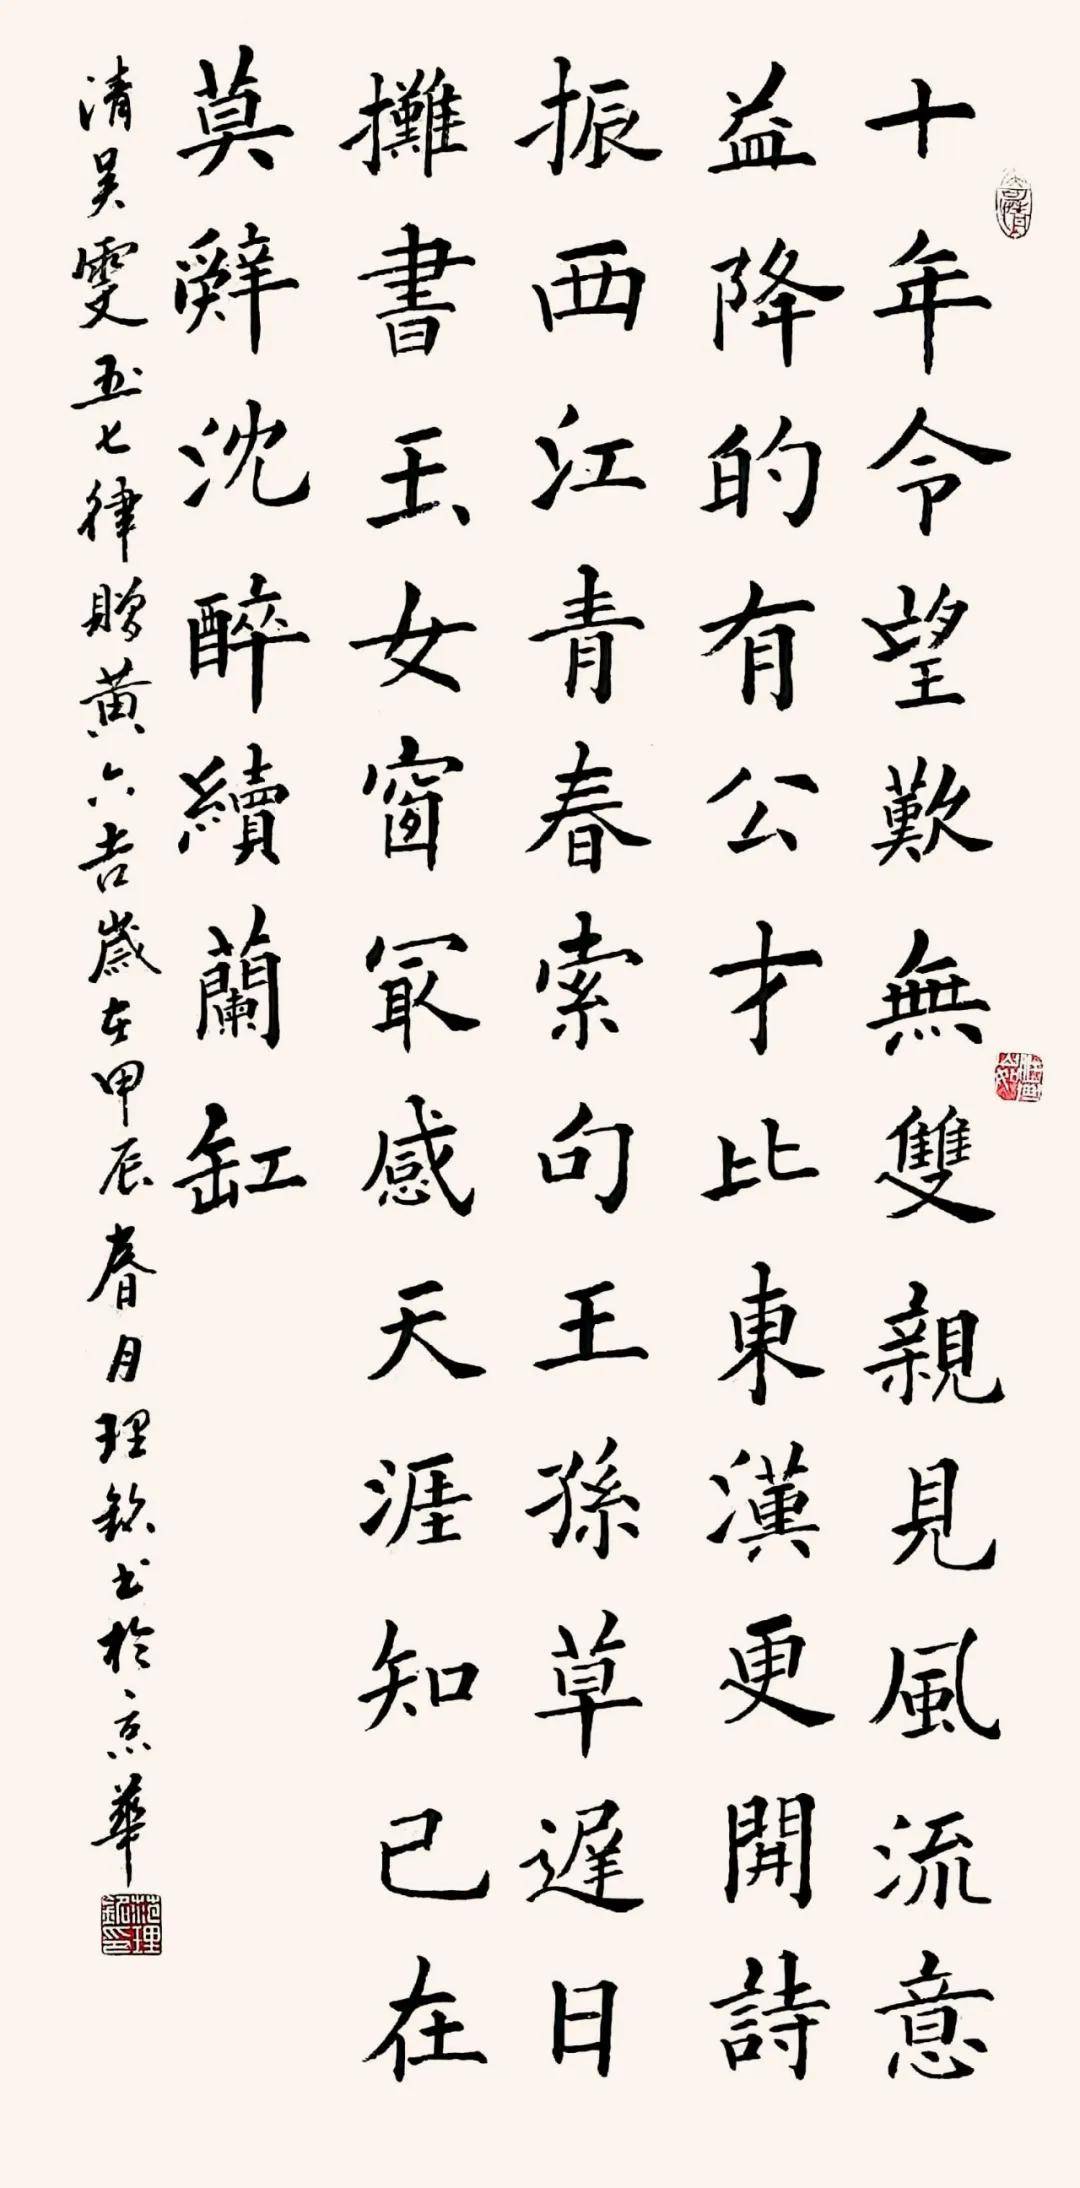 十年令望歎無雙親見風流意
益降的有公才比東漢更開詩
振西江青春索句王孫草遲日
攤書玉女窗冣感天涯知已在
莫辭沈醉續蘭缸
清吴雯五七律贈黄六吉歲在甲辰春月理銘书於京華